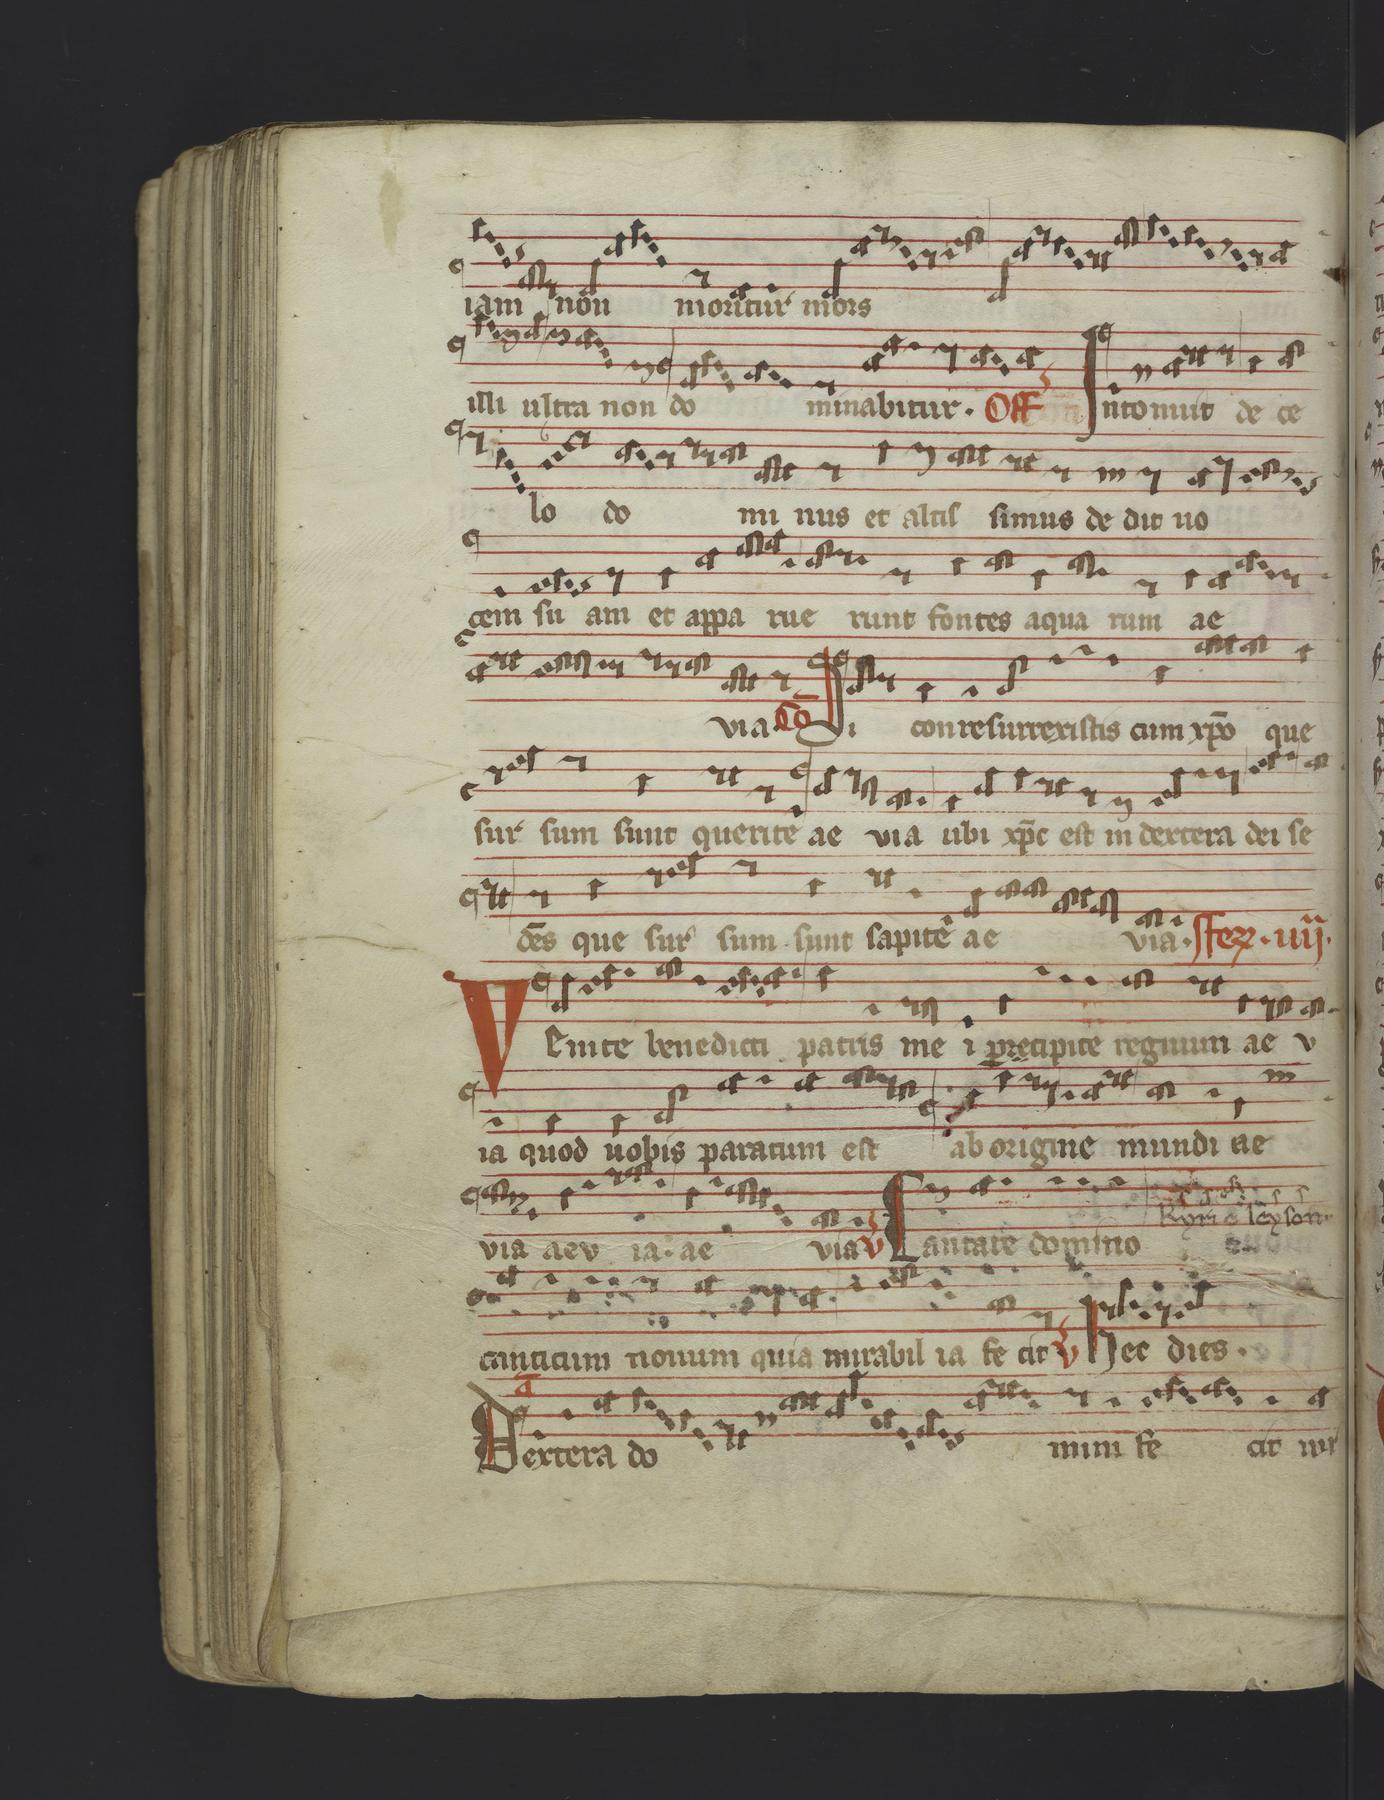 iam non moritur mors
illi ultra non do minabitur. Off Intonuit de ce
lo do mi nus et altis simus de dit uo
cem su am et appa rue runt fontes aqua rum ae
via. Co Si conresurrexistis cum xpo que
sur sum sunt querite ae via ubi xpc est in dextera dei se
des que sur sum sunt sapite ae via. Fer. iiij.
Venite benedicti patris me i precipite regnum ae v
ia quod uobis paratum est ab origine mundi ae
Kyrie leyson
via aev ia. ae via V Cantate domino
canticum nouum quia mirabil ia fe cit V Hec dies.
A
Dextera do mini fe cit uir